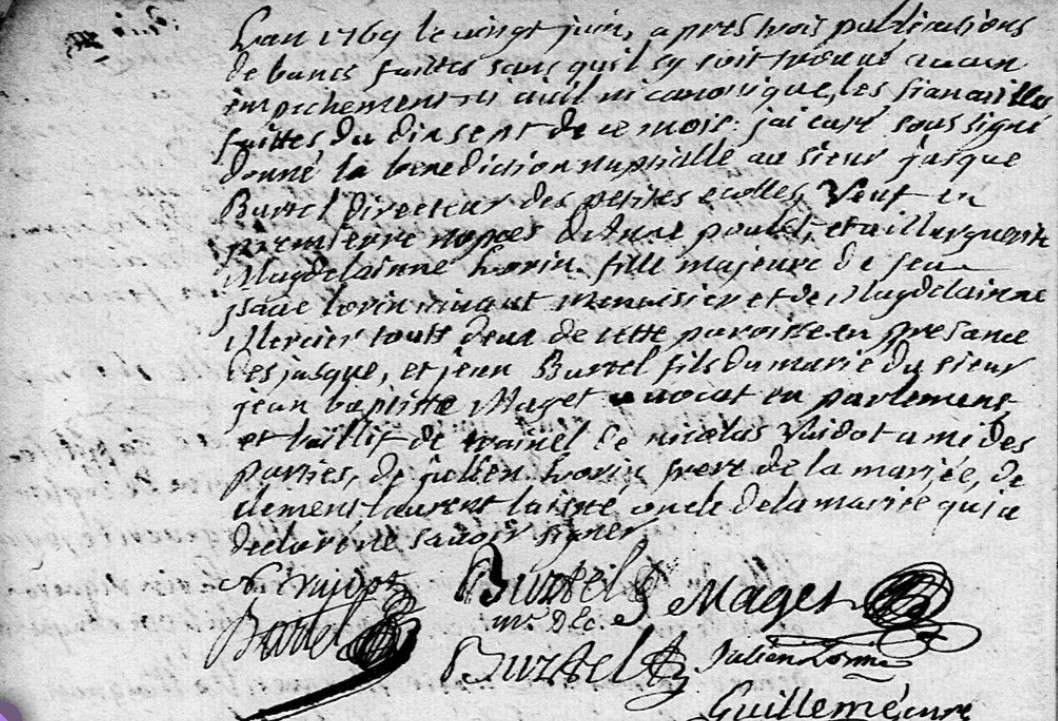 L'an 1769 le vingt juin, apres trois publications
de bancs faittes sans qu'il sy soit trouvé aucun
empechement ni civil ni canonique, les fiancailles
faittes du dixsept de ce mois. j'ai curé soussigné
donné la benediction nuptialle au sieur jasque
Burtel directeur des petites ecolles, Veuf en
premierre nopces d'Anne poulet, et a illarguerite
Magdelainne Lorin. fille majeure de feu
isaac lorin vivant menuisier et de Magdelainne
Mercier touts deux de cette paroisse en presance
des jasque, et jean Burtel fils du marié du sieur
jean baptiste Maget avocat en parlement
et baillif de trainel de nicolas Vaidot ami des
parties, de julien Lorin frere de la mariée, de
clement laurent oncle de la mariée qui a
declaré ne savoir signer
N. Vaidot Burtel Maget
Burtel
Burtel Julien Lorin
Guillemé curé